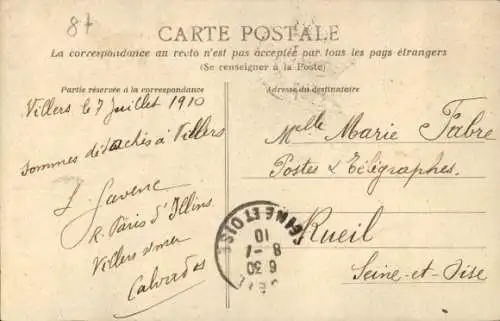 87
CARTE POSTALE
La correspondance au recto n'est pas acceptée par tous les pays étrangers
(Se renseigner à la Poste)
Partie réservée à la correspondance
Adresse du destinataire
Villers le 7 Juillet 1910
sommes détachés à Villers
R. Paris d'Illins
Villers s/mer
Calvados
Melle Marie Fabre
Postes & Télégraphes.
Rueil
Seine-et-Oise
SEINE ET OISE
6 30
8 -7
10